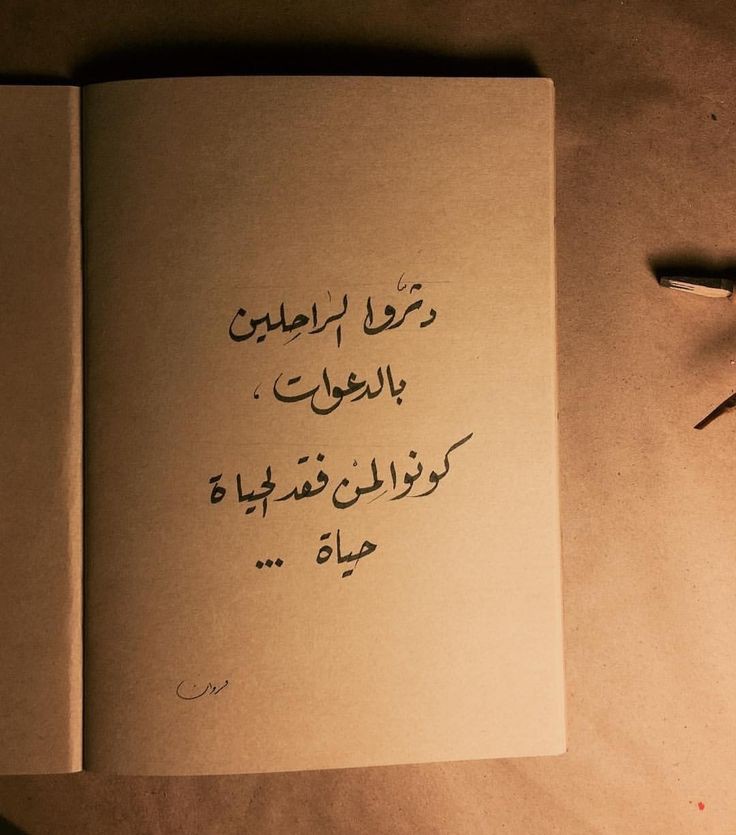 دثّروا الراحلين
بالدعوات ،
كونوا لمن فقد الحياة
حياة ...
مروان